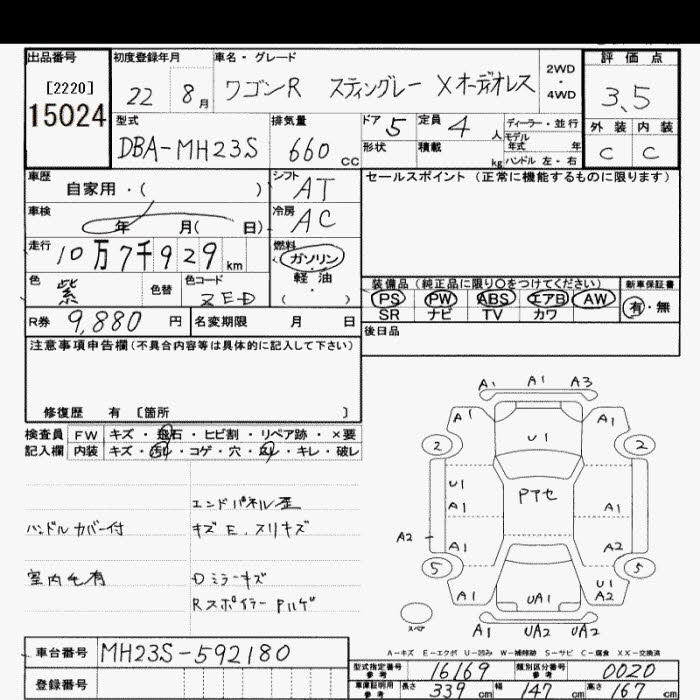 出品番号 初度登録年月 車名・グレード 評価点
[2220] 22 8月 ワゴンR スティングレー Xオーディオレス 2WD・4WD 3.5
15024 型式 排気量 ドア 5 定員 4人 ディーラー・並行 外装 内装
DBA-MH23S 660cc 形状 積載 kg モデル年式 年 C C
ハンドル 左・右
車歴 自家用・( ) シフト AT セールスポイント (正常に機能するものに限ります)
車検 年 月( 日) 冷房 AC
走行 10万7千929km 燃料 ガソリン・軽油・( )
色 紫 色替 色コード ZED 装備品 (純正品に限り○をつけてください) 新車保証書
PS PW ABS エアB AW 有・無
R券 9,880円 名変期限 月 日 SR ナビ TV カワ
注意事項申告欄(不具合内容等は具体的に記入して下さい) 後日品
修復歴 有 〔箇所 〕
検査員 FW キズ・飛石・ヒビ割・リペア跡・×要
記入欄 内装 キズ・汚れ・コゲ・穴・スレ・キレ・破レ
エンドパネル歪
ハンドルカバー付 キズE.スリキズ
室内毛有 Dミラーキズ
Rスポイラー Pハゲ
A1 A1 A3
A1 A1
2 U1 2
U1 PTセ
A1 A1
A2 A1 A2
5 5
A1 UA1 U1 A2
スペア A1 UA2 UA2
A-キズ E-エクボ U-凹み W-補修跡 S-サビ C-腐食 XX-交換済
車台番号 MH23S-592180
登録番号
型式指定番号 参考 16169 類別区分番号 参考 0020
車庫証明用 参考 長さ 339cm 幅 147cm 高さ 167cm